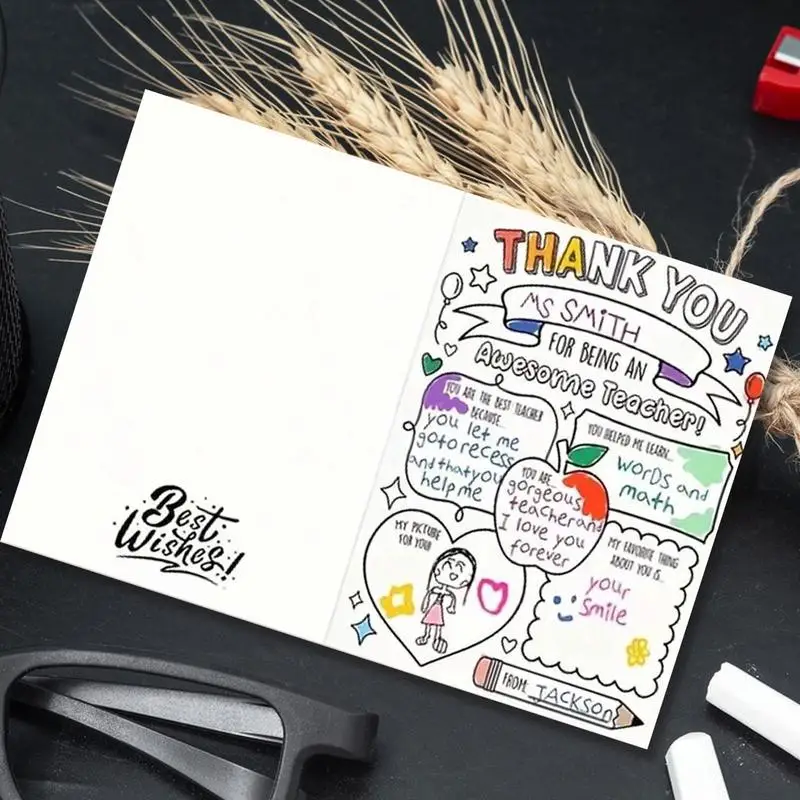 THANK YOU
MS SMiTH
FOR BEING AN
Awesome Teacher!
YOU ARE THE BEST TEACHER
BECAUSE...
you let me
goto recess
and that you
help me
YOU HELPED ME LEARN...
WORDS and
math
YOU ARE...
gorgeous
teacher and
I love you
forever
MY PICTURE
FOR YOU!
MY FAVORITE THING
ABOUT YOU IS...
your
Smile
FROM: JACKSON
Best
Wishes!